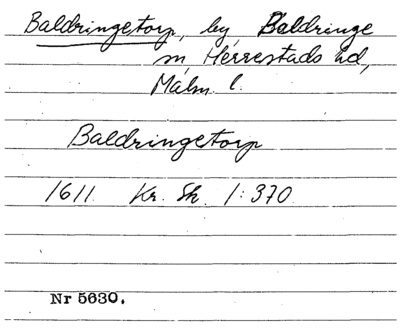 Baldringetorp, by Baldringe
sn, Herrestads hd,
Malm. l.
Baldringetorp
1611 Kr. Sk. 1:370
Nr 5630.